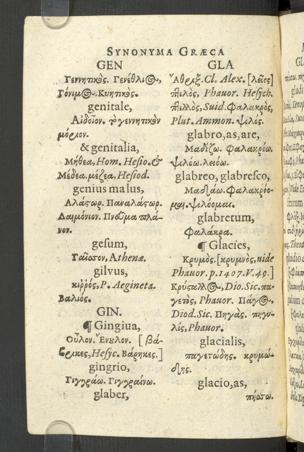 SYNONYMA GRÆCA
GEN
Γεννητικὸς. Γενέθλιος,
Γόνιμος. Κυητικὸς.
genitale,
Αἰδοῖον. τὸ γεννητικὸν
μόριον.
& genitalia,
Μήδεα, Hom. Hesio. &
Μέδεα. μέζεα, Hesiod.
genius malus,
Ἀλάστωρ. Παναλάστωρ.
Δαιμόνιον. Πνεῦμα πλά-
νον.
gesum,
Γαῖσον, Athenæ.
gilvus,
κιρρὸς, P. Aegineta.
Βαλιὸς.
GIN.
¶ Gingiua,
Οὖλον. Ἔνουλον. [βά-
Hesyc. Βάρηκες.]
gingrio,
Γιγγράω. Γιγγραίνω.
glaber,
GLA
Ἄθριξ. Cl. Alex. [λεῖος]
Phauor. Hesych.
Suid. Φαλακρὸς,
Plut. Ammon. ψιλός.
glabro, as, are,
Μαδίζω. Φαλακρόω.
ψιλόω. λειόω.
glabreo, glabresco,
Μαδάω. Φαλακρόο-
μαι. ψιλόομαι.
glabretum,
Φαλάκρα.
¶ Glacies,
κρυμὸς. [κρυμνὸς, uide
Phauor. p. 1407. V. 49.]
Κρύσταλλος, Dio. Sic. πα-
γετὸς, Phauor. Πάγος,
Diod. Sic. Πηγὰς. πηγυ-
λὶς, Phauor.
glacialis,
παγετώδης. κρυμώ-
δης.
glacio, as,
πήσσω.